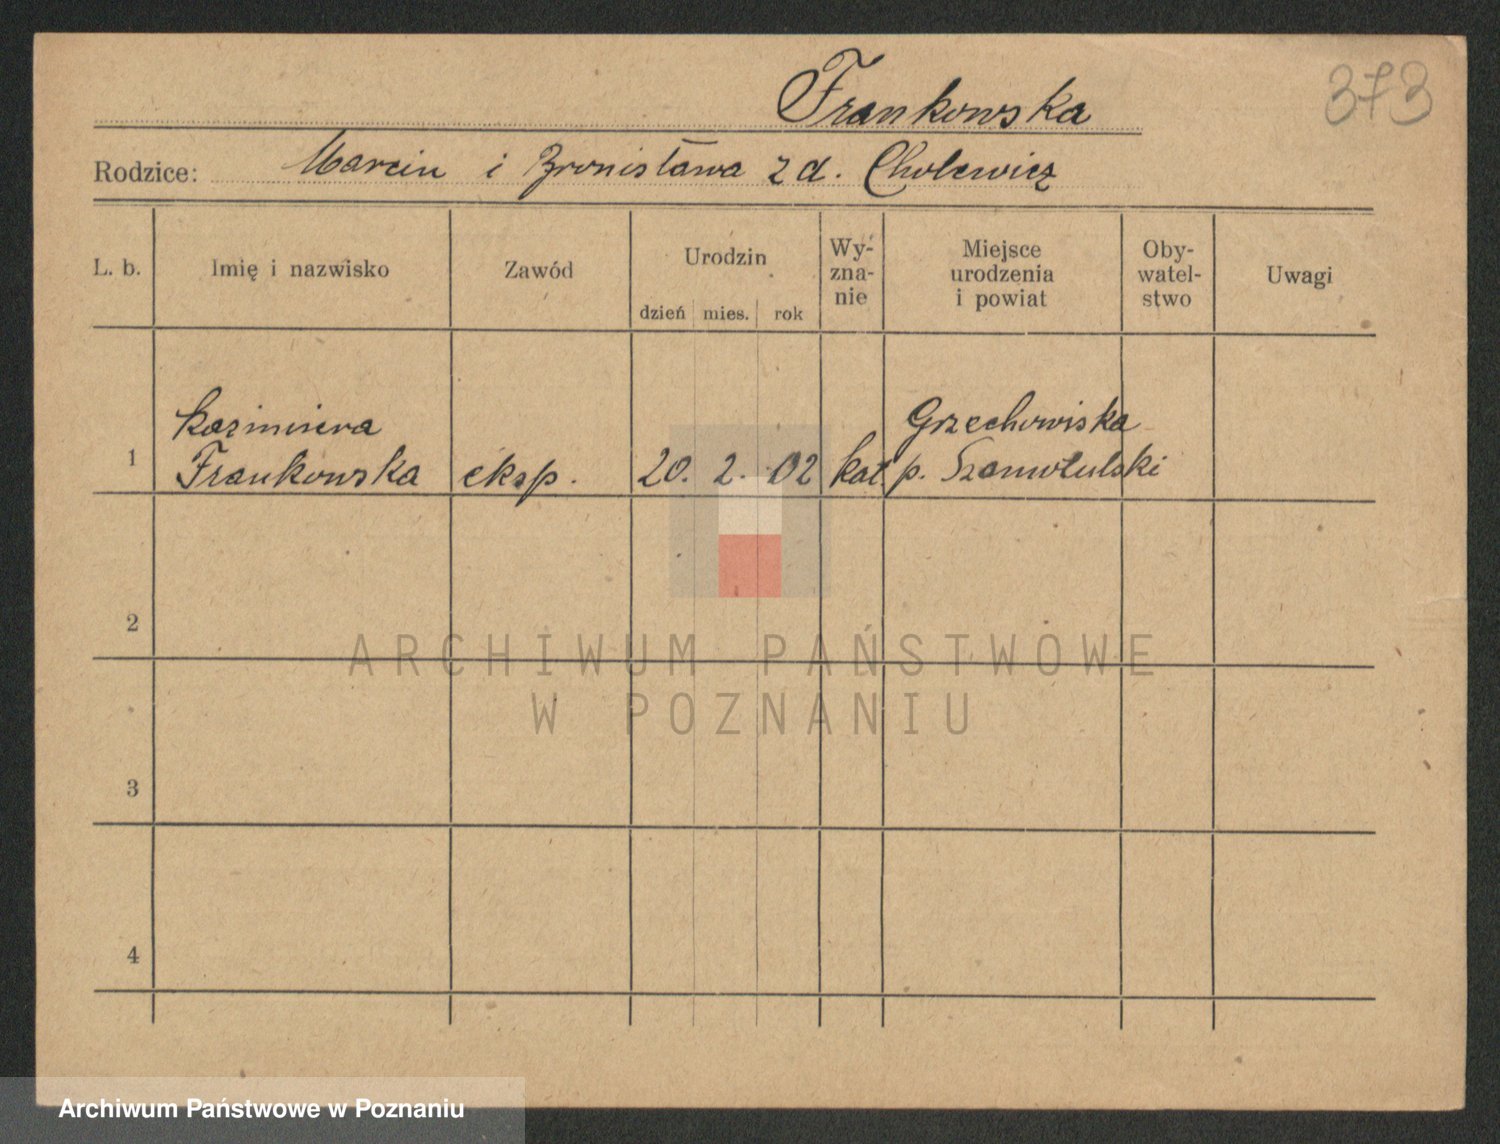 Frankowska
373
Rodzice: Marcin i Bronisława z d. Cholewicz
L. b.
Imię i nazwisko
Zawód
Urodzin
dzień mies. rok
Wy-
zna-
nie
Miejsce
urodzenia
i powiat
Oby-
watel-
stwo
Uwagi
1
Kazimiera
Frankowska
eksp.
20. 2. 02
kat
Grzechowiska
p. Szamotulski
2
3
4
ARCHIWUM PAŃSTWOWE
W POZNANIU
Archiwum Państwowe w Poznaniu